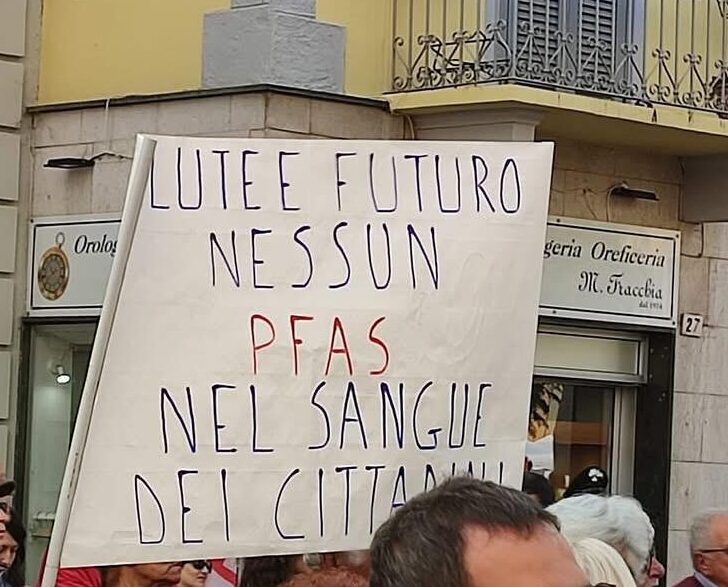 LUTE E FUTURO
NESSUN
PFAS
NEL SANGUE
DEI CITTADINI
Orolog
geria Oreficeria
M. Fracchia
27